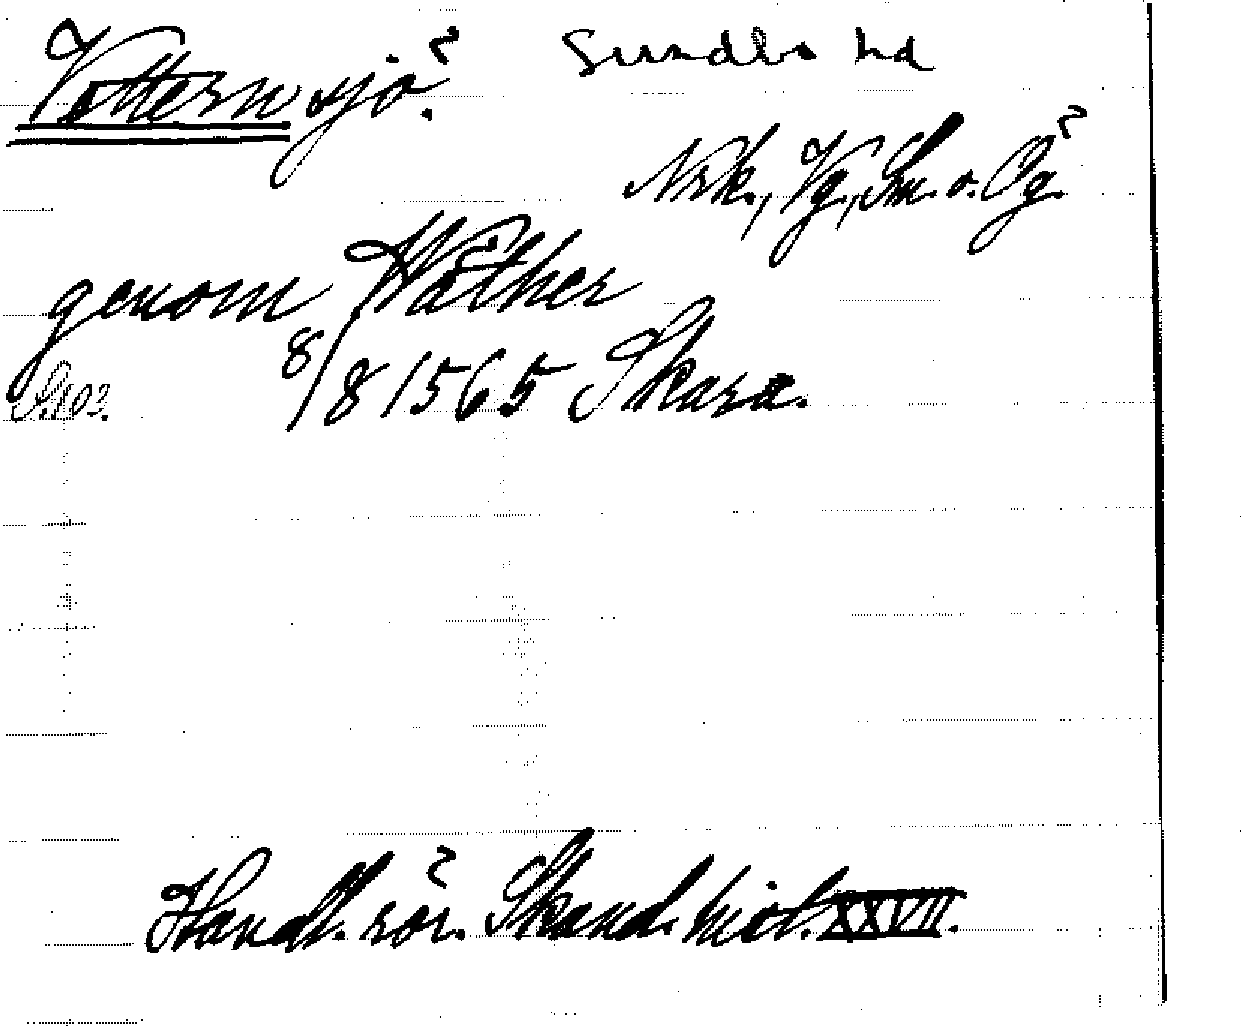 Vättern sjö. Sundbo hd
Nrk., Vg., Sm. o. Ög.
genom Wäther
8/8 1565 Skara.
Handl. rör. Skand. hist. XXVII.